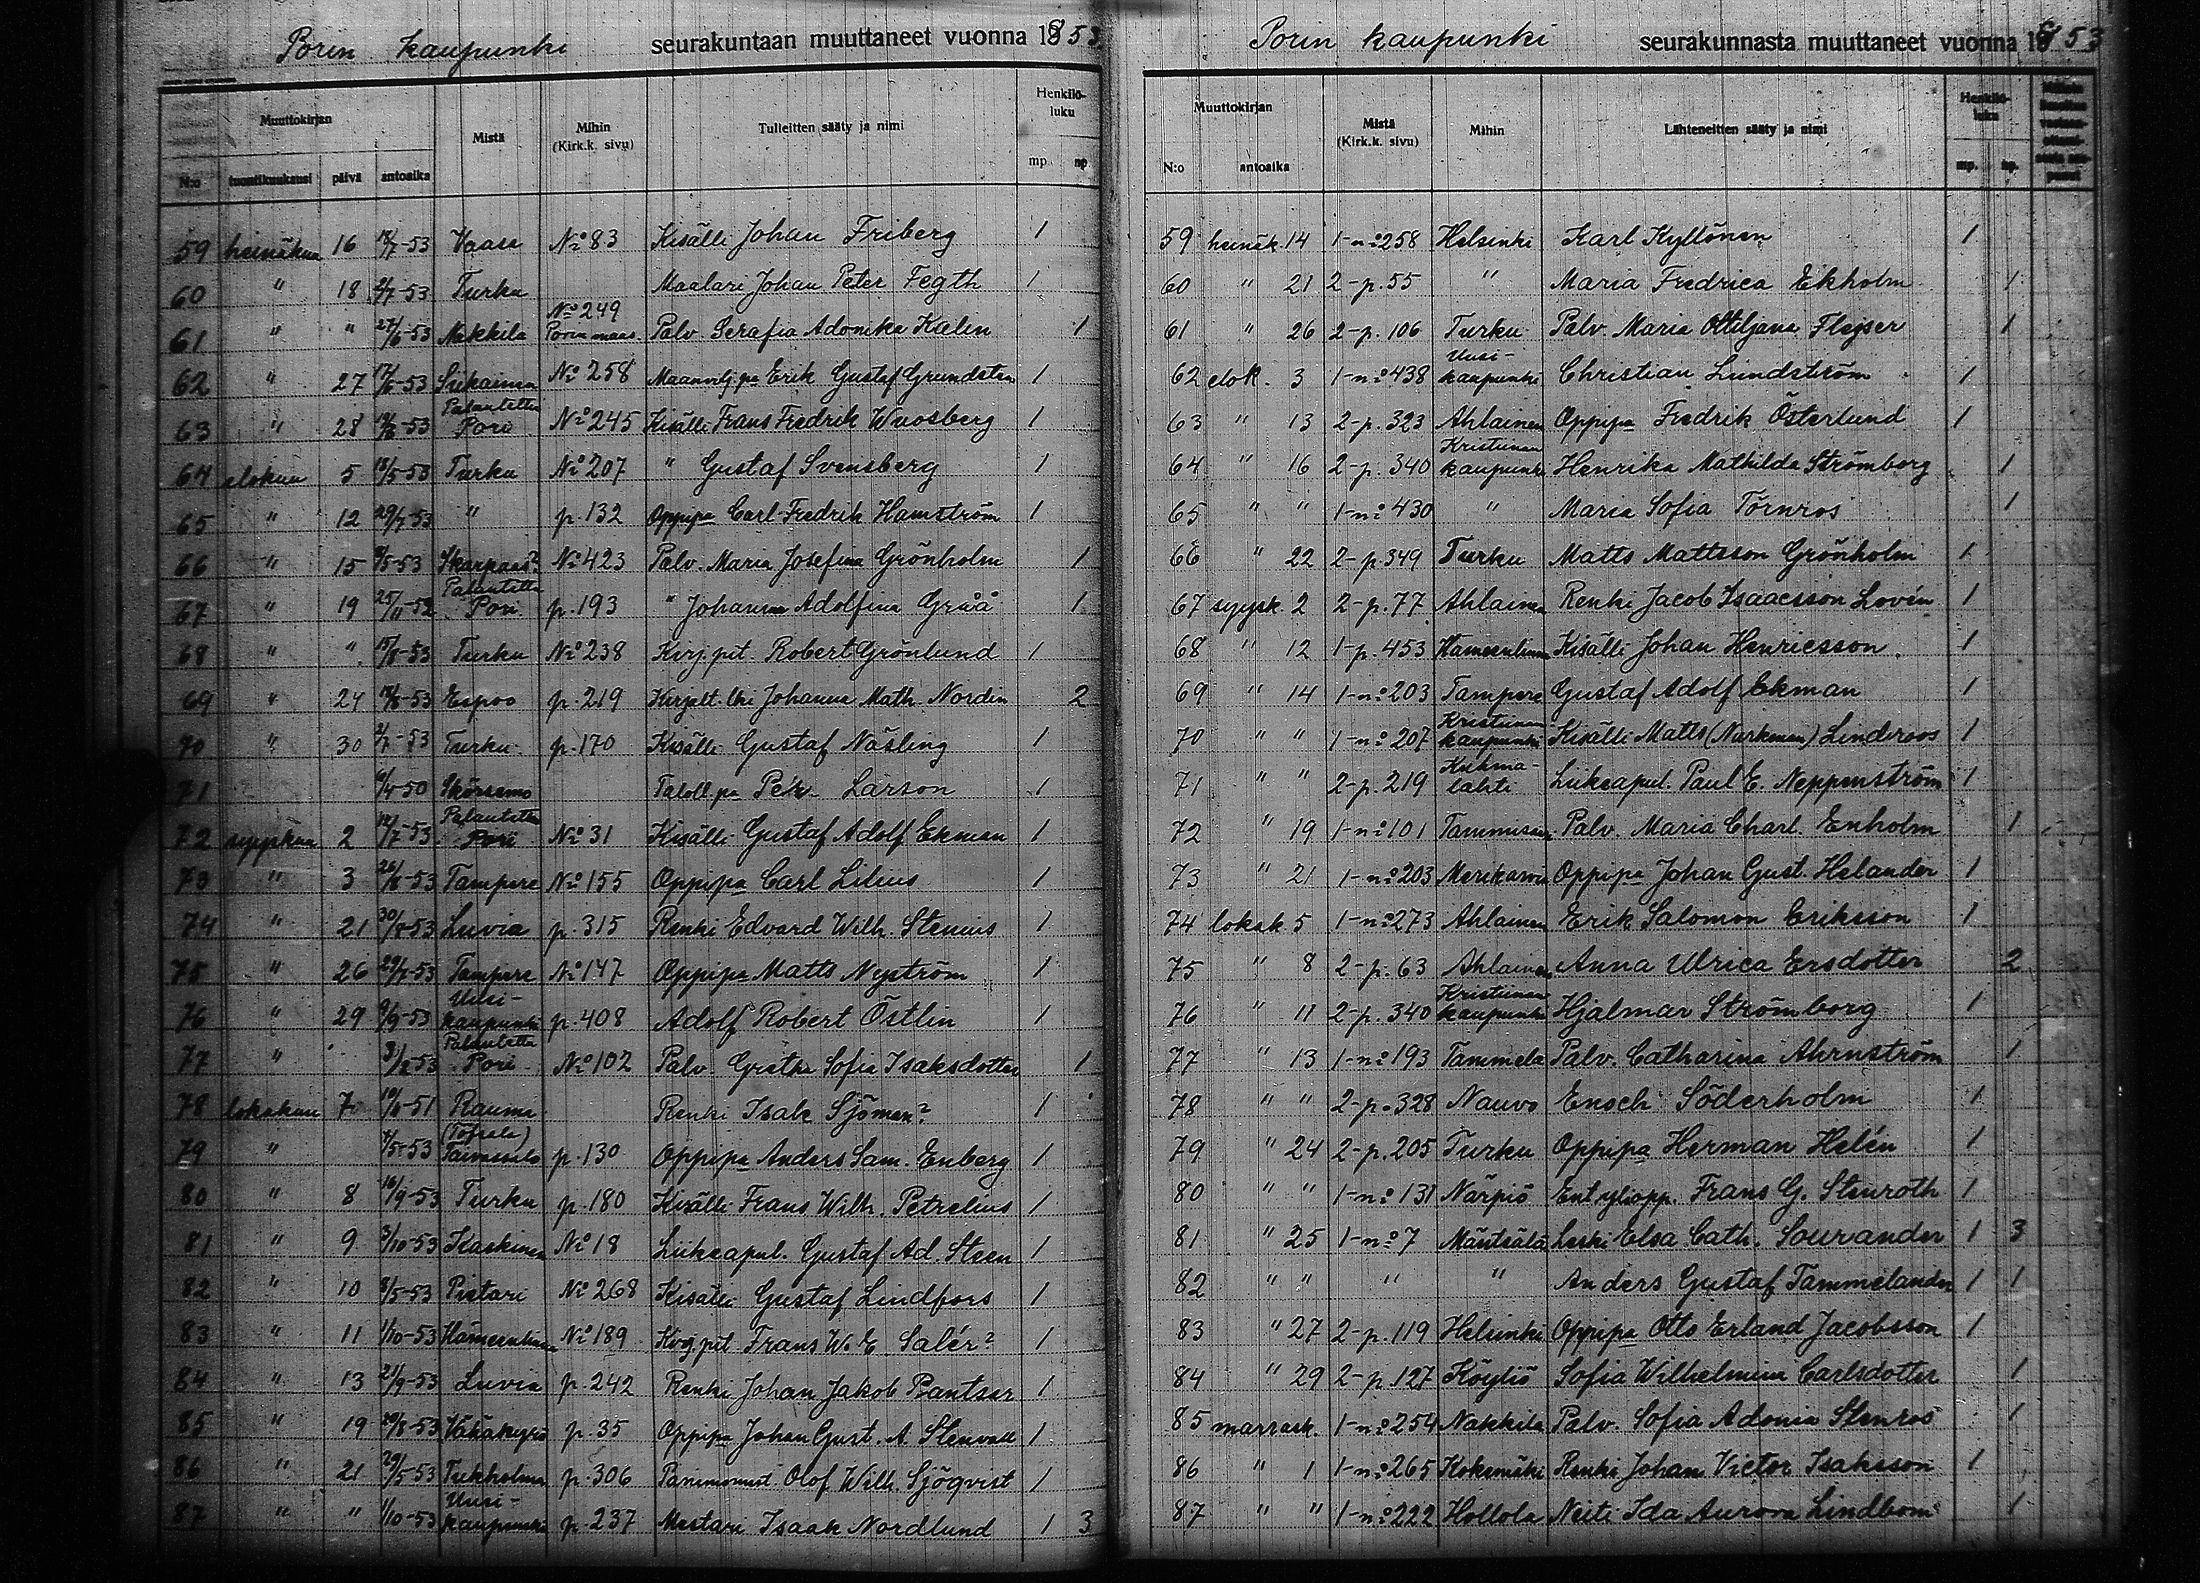 Porin kaupunki seurakuntaan muuttaneet vuonna 1853
Muuttokirjan Mistä Mihin (Kirk.k. sivu) Tulleitten sääty ja nimi Henkilö-luku
N:o tuontikuukausi päivä antoaika mp. np.
59 heinäkuu 16 -53 Vaasa No 83 Kisälli Johan Friberg 1
60 " 18 2/7-53 Turku Maalari Johan Peter Fegth 1
61 " " 27/6-53 Nakkila No 249 Porin maas. Palv. Serafia Adonika Kalin 1
62 " 27 17/6-53 Siikainen No 258 Maanvilj.pa Erik Gustaf Grundsten 1
63 " 28 -53 Palautettu Pori No 245 Kisälli Frans Fredrik Wuosberg 1
64 elokuu 5 18/5-53 Turku No 207 " Gustaf Svensberg 1
65 " 12 29/7-53 " p. 132 Oppipa Carl Fredrik Hamström 1
66 " 15 -53 Skarpaas? No 423 Palv. Maria Josefina Grönholm 1
67 " 19 25/11-52 Palautettu Pori p. 193 " Johanna Adolfina Gråå 1
68 " " 15/8-53 Turku No 238 Kirj.pit. Robert Grönlund 1
69 " 24 -53 Espoo p. 219 Kirjalt. lki Johanna Math. Nordin 2
70 " 30 2/7-53 Turku p. 170 Kisälli Gustaf Näsling 1
71 -50 Taloll.pa Petr Larson 1
72 syyskuu 2 -53 Palautettu Pori No 31 Kisälli Gustaf Adolf Ekman 1
73 " 3 26/8-53 Tampere No 155 Oppipa Carl Lilius 1
74 " 21 30/8-53 Luvia p. 315 Renki Edvard Wilh. Stenius 1
75 " 26 29/7-53 Tampere No 147 Oppipa Matts Nyström 1
76 " 29 9/9-53 Uusi-kaupunki p. 408 Adolf Robert Östlin 1
77 " -53 Palautettu Pori No 102 Palv. Gretha Sofia Isaksdotter 1
78 lokakuu 7 10/6-51 Rauma Renki Isak Sjöman? 1
79 " -53 (Töfsala) Taivassalo p. 130 Oppipa Anders Sam. Enberg 1
80 " 8 16/9-53 Turku p. 180 Kisälli Frans Wilh. Petrelius 1
81 " 9 3/10-53 Kaskinen No 18 Liikeapul. Gustaf Ad. Steen 1
82 " 10 -53 Pietari No 268 Kisälli Gustaf Lindfors 1
83 " 11 1/10-53 Hämeenlinna No 189 Kirj.pit. Frans W. E. Salér? 1
84 " 13 21/9-53 Luvia p. 242 Renki Johan Jakob Pantsar 1
85 " 19 -53 Vähäkyrö p. 35 Oppipa Johan Gust. A. Stenvall 1
86 " 21 29/5-53 Tukholma p. 306 Olof Wilh. Sjöqvist 1
87 " " 1/10-53 Uusi-kaupunki p. 237 Mestari Isaak Nordlund 1 3
Porin kaupunki seurakunnasta muuttaneet vuonna 1853
Muuttokirjan Mistä (Kirk.k. sivu) Mihin Lähteneitten sääty ja nimi Henkilö-luku
N:o antoaika mp. np.
59 heinäk. 14 1-no 258 Helsinki Karl Kyllönen 1
60 " 21 2-p. 55 " Maria Fredrica Ekholm 1
61 " 26 2-p. 106 Turku Palv. Maria Ottiljana Flejser 1
62 elok. 3 1-no 438 Uusi-kaupunki Christian Lundström 1
63 " 13 2-p. 323 Ahlainen Oppipa Fredrik Österlund 1
64 " 16 2-p. 340 Kristiinankaupunki Henrika Mathilda Strömborg 1
65 " " 1-no 430 " Maria Sofia Törnros 1
66 " 22 2-p. 349 Turku Matts Mattsson Grönholm 1
67 syysk. 2 2-p. 77 Ahlainen Renki Jacob Isaacsson Lovén 1
68 " 12 1-p. 453 Hämeenlinna Kisälli Johan Henricsson 1
69 " 14 1-no 203 Tampere Gustaf Adolf Ekman 1
70 " " 1-no 207 Kristiinankaupunki Kisälli Matts (Narkman) Lindroos 1
71 " " 2-p. 219 Kuhma-lahti Liikeapul. Paul E. Neppenström 1
72 " 19 1-no 101 Tammisaari Palv. Maria Charl. Enholm 1
73 " 21 1-no 203 Merikarvia Oppipa Johan Gust. Helander 1
74 lokak. 5 1-no 273 Ahlainen Erik Salomon Eriksson 1
75 " 8 2-p. 63 Ahlainen Anna Ulrica Ersdotter 2
76 " 11 2-p. 340 Kristiinankaupunki Hjalmar Strömborg 1
77 " 13 1-no 193 Tammela Palv. Catharina Ahrnström 1
78 " " 2-p. 328 Nauvo Enoch Söderholm 1
79 " 24 2-p. 205 Turku Oppipa Herman Helén 1
80 " " 1-no 131 Närpiö Ent. yliopp. Frans G. Stenroth 1
81 " 25 1-no 7 Mäntsälä Leski Elsa Cath. Sourander 1 3
82 " " " " Anders Gustaf Tammelander 1 1
83 " 27 2-p. 119 Helsinki Oppipa Otto Erland Jacobsson 1
84 " 29 2-p. 127 Köyliö Sofia Wilhelmina Carlsdotter 1
85 marrask. 1-no 254 Nakkila Palv. Sofia Adonia Stenros 1
86 " 1 1-no 265 Kokemäki Renki Johan Victor Isaksson 1
87 " " 1-no 222 Hollola Neiti Ida Aurora Lindbom 1